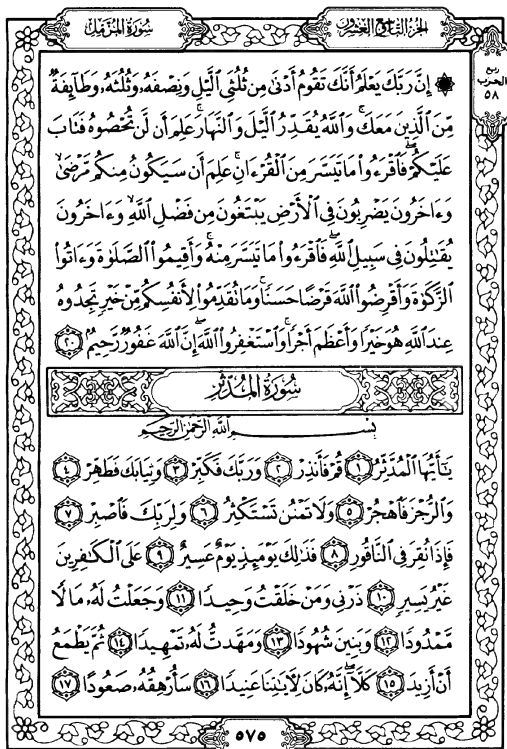 سُورَةُ المُزَّمِّل
الجُزءُ التَّاسِعُ وَالعِشْرُونَ
ربع
الحزب
٥٨
۞ إِنَّ رَبَّكَ يَعْلَمُ أَنَّكَ تَقُومُ أَدْنَىٰ مِن ثُلُثَيِ ٱلَّيْلِ وَنِصْفَهُۥ وَثُلُثَهُۥ وَطَآئِفَةٌ
مِّنَ ٱلَّذِينَ مَعَكَ ۚ وَٱللَّهُ يُقَدِّرُ ٱلَّيْلَ وَٱلنَّهَارَ ۚ عَلِمَ أَن لَّن تُحْصُوهُ فَتَابَ
عَلَيْكُمْ ۖ فَٱقْرَءُوا۟ مَا تَيَسَّرَ مِنَ ٱلْقُرْءَانِ ۚ عَلِمَ أَن سَيَكُونُ مِنكُم مَّرْضَىٰ ۙ
وَءَاخَرُونَ يَضْرِبُونَ فِى ٱلْأَرْضِ يَبْتَغُونَ مِن فَضْلِ ٱللَّهِ ۙ وَءَاخَرُونَ
يُقَـٰتِلُونَ فِى سَبِيلِ ٱللَّهِ ۖ فَٱقْرَءُوا۟ مَا تَيَسَّرَ مِنْهُ ۚ وَأَقِيمُوا۟ ٱلصَّلَوٰةَ وَءَاتُوا۟
ٱلزَّكَوٰةَ وَأَقْرِضُوا۟ ٱللَّهَ قَرْضًا حَسَنًا ۚ وَمَا تُقَدِّمُوا۟ لِأَنفُسِكُم مِّنْ خَيْرٍ تَجِدُوهُ
عِندَ ٱللَّهِ هُوَ خَيْرًا وَأَعْظَمَ أَجْرًا ۚ وَٱسْتَغْفِرُوا۟ ٱللَّهَ ۖ إِنَّ ٱللَّهَ غَفُورٌ رَّحِيمٌۢ ٢٠
سُورَةُ المُدَّثِّر
بِسْمِ ٱللَّهِ ٱلرَّحْمَـٰنِ ٱلرَّحِيمِ
يَـٰٓأَيُّهَا ٱلْمُدَّثِّرُ ١ قُمْ فَأَنذِرْ ٢ وَرَبَّكَ فَكَبِّرْ ٣ وَثِيَابَكَ فَطَهِّرْ ٤
وَٱلرُّجْزَ فَٱهْجُرْ ٥ وَلَا تَمْنُن تَسْتَكْثِرُ ٦ وَلِرَبِّكَ فَٱصْبِرْ ٧
فَإِذَا نُقِرَ فِى ٱلنَّاقُورِ ٨ فَذَٰلِكَ يَوْمَئِذٍ يَوْمٌ عَسِيرٌ ٩ عَلَى ٱلْكَـٰفِرِينَ
غَيْرُ يَسِيرٍ ١٠ ذَرْنِى وَمَنْ خَلَقْتُ وَحِيدًا ١١ وَجَعَلْتُ لَهُۥ مَالًا
مَّمْدُودًا ١٢ وَبَنِينَ شُهُودًا ١٣ وَمَهَّدتُّ لَهُۥ تَمْهِيدًا ١٤ ثُمَّ يَطْمَعُ
أَنْ أَزِيدَ ١٥ كَلَّآ ۖ إِنَّهُۥ كَانَ لِـَٔايَـٰتِنَا عَنِيدًا ١٦ سَأُرْهِقُهُۥ صَعُودًا ١٧
٥٧٥